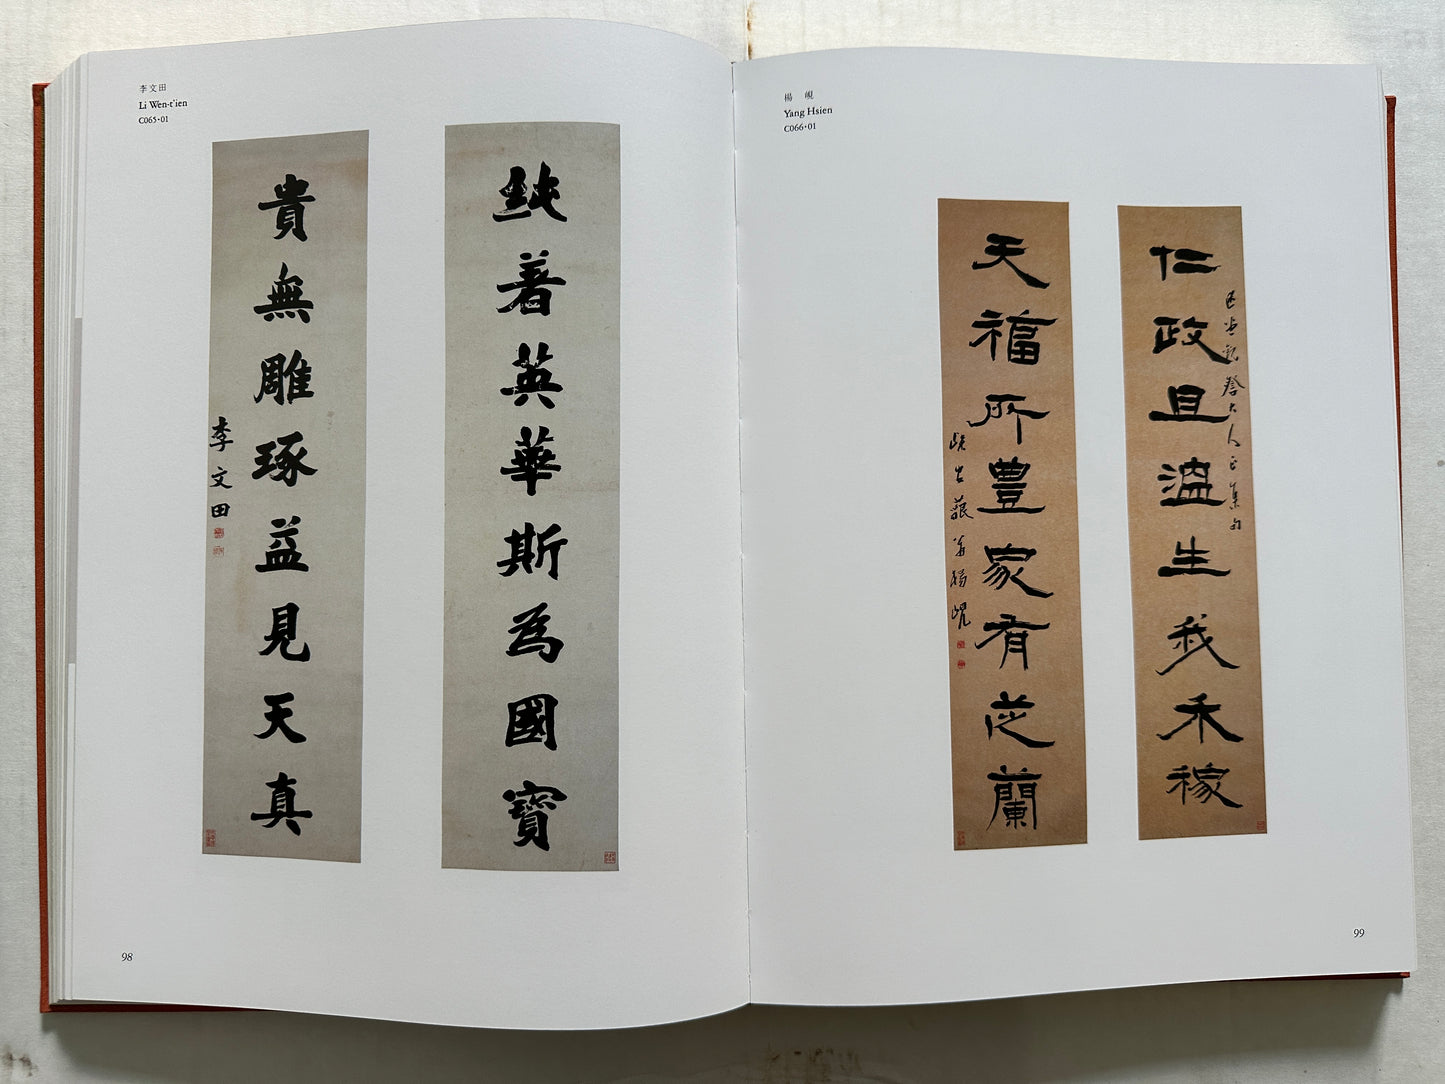 李文田
Li Wen-t'ien
C065•01
純著英華斯為國寶
貴無雕琢益見天真
李文田
98
楊峴
Yang Hsien
C066•01
仁政且溫生我禾稼
大人正集句
天福所豊家有芝蘭
藐翁楊峴
99